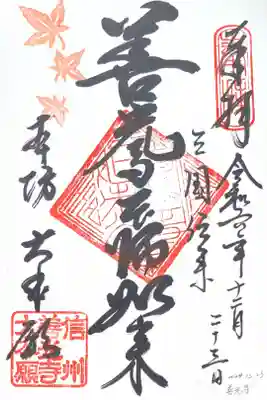 奉拝
令和六年十二月二十三日
三国伝来
善光寺如来
本坊 大本願
信州
善光寺
大本願
2024.12.23
善光寺